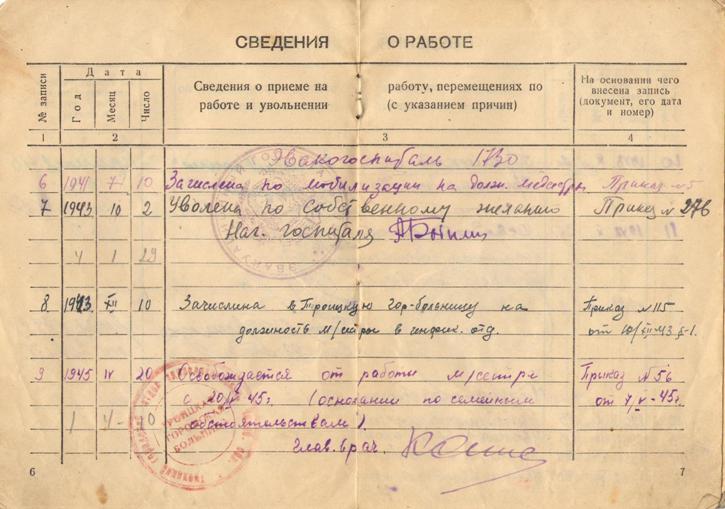 СВЕДЕНИЯ О РАБОТЕ
№ записи
Дата
Год
Месяц
Число
Сведения о приеме на работу, перемещениях по
работе и увольнении (с указанием причин)
На основании чего
внесена запись
(документ, его дата
и номер)
1 2 3 4
Эвакогоспиталь 1730
6 1941 7 10 Зачислена по мобилизации на долж. медсестры Приказ №5
7 1943 10 2 Уволена по собственному желанию Приказ № 276
Нач. госпиталя
4 1 29
8 1943 XII 10 Зачислина в Троицкую гор-больницу на Приказ №115
должность м/сестры в отд. от 10/XII-43
9 1945 IV 20 Освобождается от работы м/сестры Приказ №56
с 20 45г. (основании по семейным от 45г.
1 4 10 обстоятельствам).
глав.врач
ТРОИЦКАЯ
ГОРОДСКАЯ
БОЛЬНИЦА
6 7